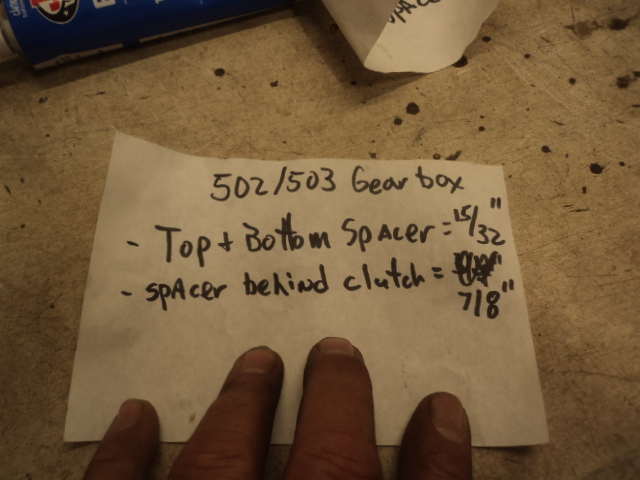 502/503 Gear box
- Top + Bottom Spacer = 15/32"
- spacer behind clutch =
7/8"